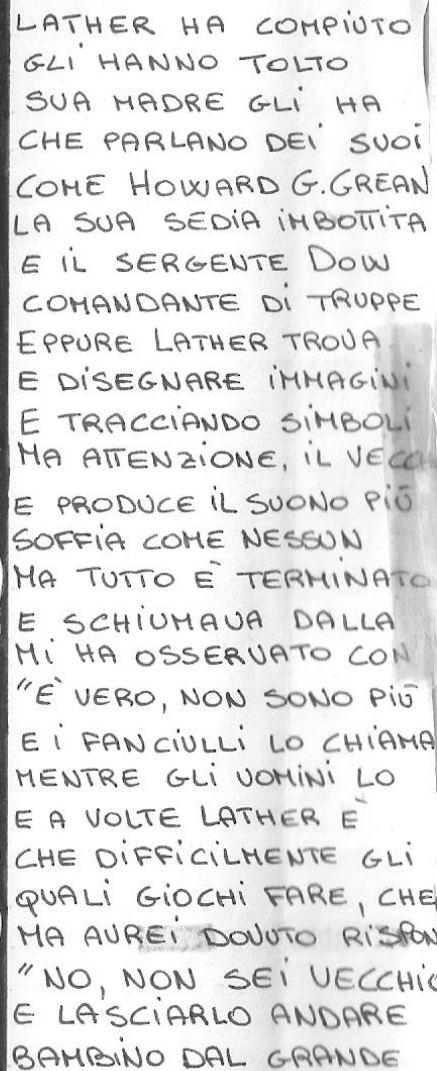 LATHER HA COMPIUTO
GLI HANNO TOLTO
SUA MADRE GLI HA
CHE PARLANO DEI SUOI
COME HOWARD G. GREAN
LA SUA SEDIA IMBOTTITA
E IL SERGENTE DOW
COMANDANTE DI TRUPPE
EPPURE LATHER TROVA
E DISEGNARE IMMAGINI
E TRACCIANDO SIMBOLI
MA ATTENZIONE, IL VECCH
E PRODUCE IL SUONO PIÙ
SOFFIA COME NESSUN
MA TUTTO È TERMINATO
E SCHIUMAVA DALLA
MI HA OSSERVATO CON
"È VERO, NON SONO PIÙ
E I FANCIULLI LO CHIAMA
MENTRE GLI UOMINI LO
E A VOLTE LATHER È
CHE DIFFICILMENTE GLI
QUALI GIOCHI FARE, CHE
MA AVREI DOVUTO RISPON
"NO, NON SEI VECCHIO
E LASCIARLO ANDARE
BAMBINO DAL GRANDE